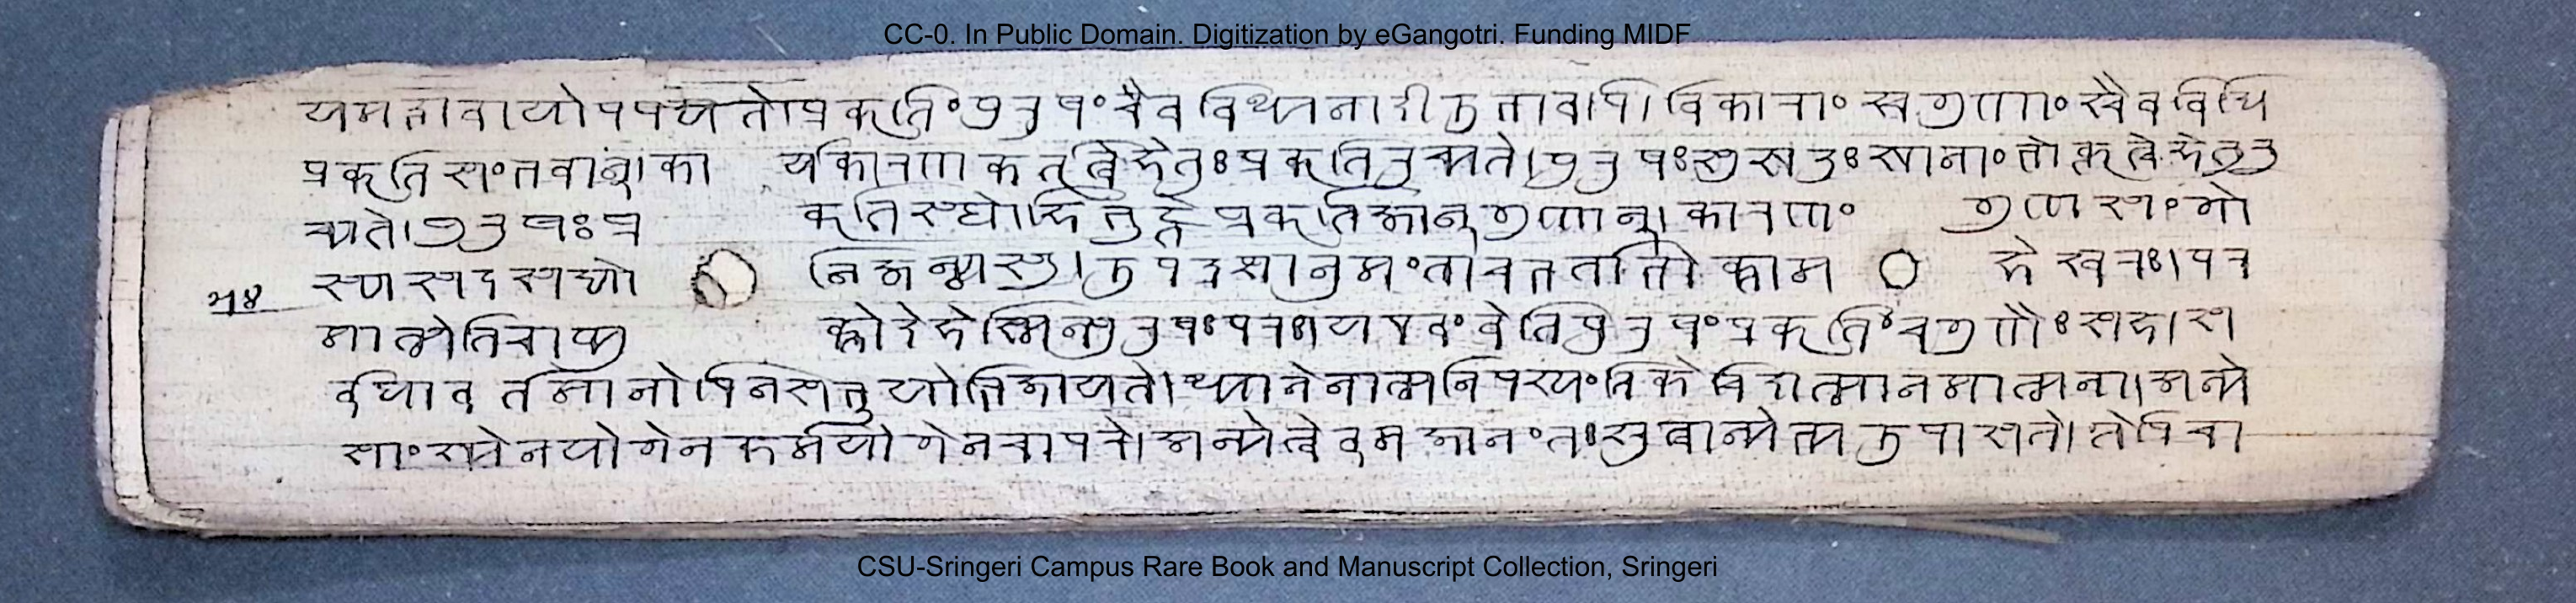 CC-0. In Public Domain. Digitization by eGangotri. Funding MIDF
यमद्भावायोपपद्यते।प्रकृतिंपुरुषंचैवविध्यनादीउभावपि।विकारांसगुणांश्चैवविधि
प्रकृतिसंभवान्।का र्यकारणकर्तृत्वेहेतुःप्रकृतिरुच्यते।पुरुषःसुखदुःखानांभोक्तृत्वेहेतुरु
च्यते।पुरुषःप्र कृतिस्थोहिभुङ्क्तेप्रकृतिजान्गुणान्।कारणं गुणसंगो
स्यसदसद्यो निजन्मसु।उपद्रष्टानुमंताचभर्ताभोक्ताम हेश्वरः।पर
मात्मेतिचाप्यु क्तोदेहेस्मिन्पुरुषःपरः।यएवंवेत्तिपुरुषंप्रकृतिंचगुणैःसह।स
र्वथावर्तमानोपिनसभूयोभिजायते।ध्यानेनात्मनिपश्यंतिकेचिदात्मानमात्मना।अन्ये
सांख्येनयोगेनकर्मयोगेनचापरे।अन्येत्वेवमजानंतःश्रुत्वान्येभ्यउपासते।तेपिचा
CSU-Sringeri Campus Rare Book and Manuscript Collection, Sringeri